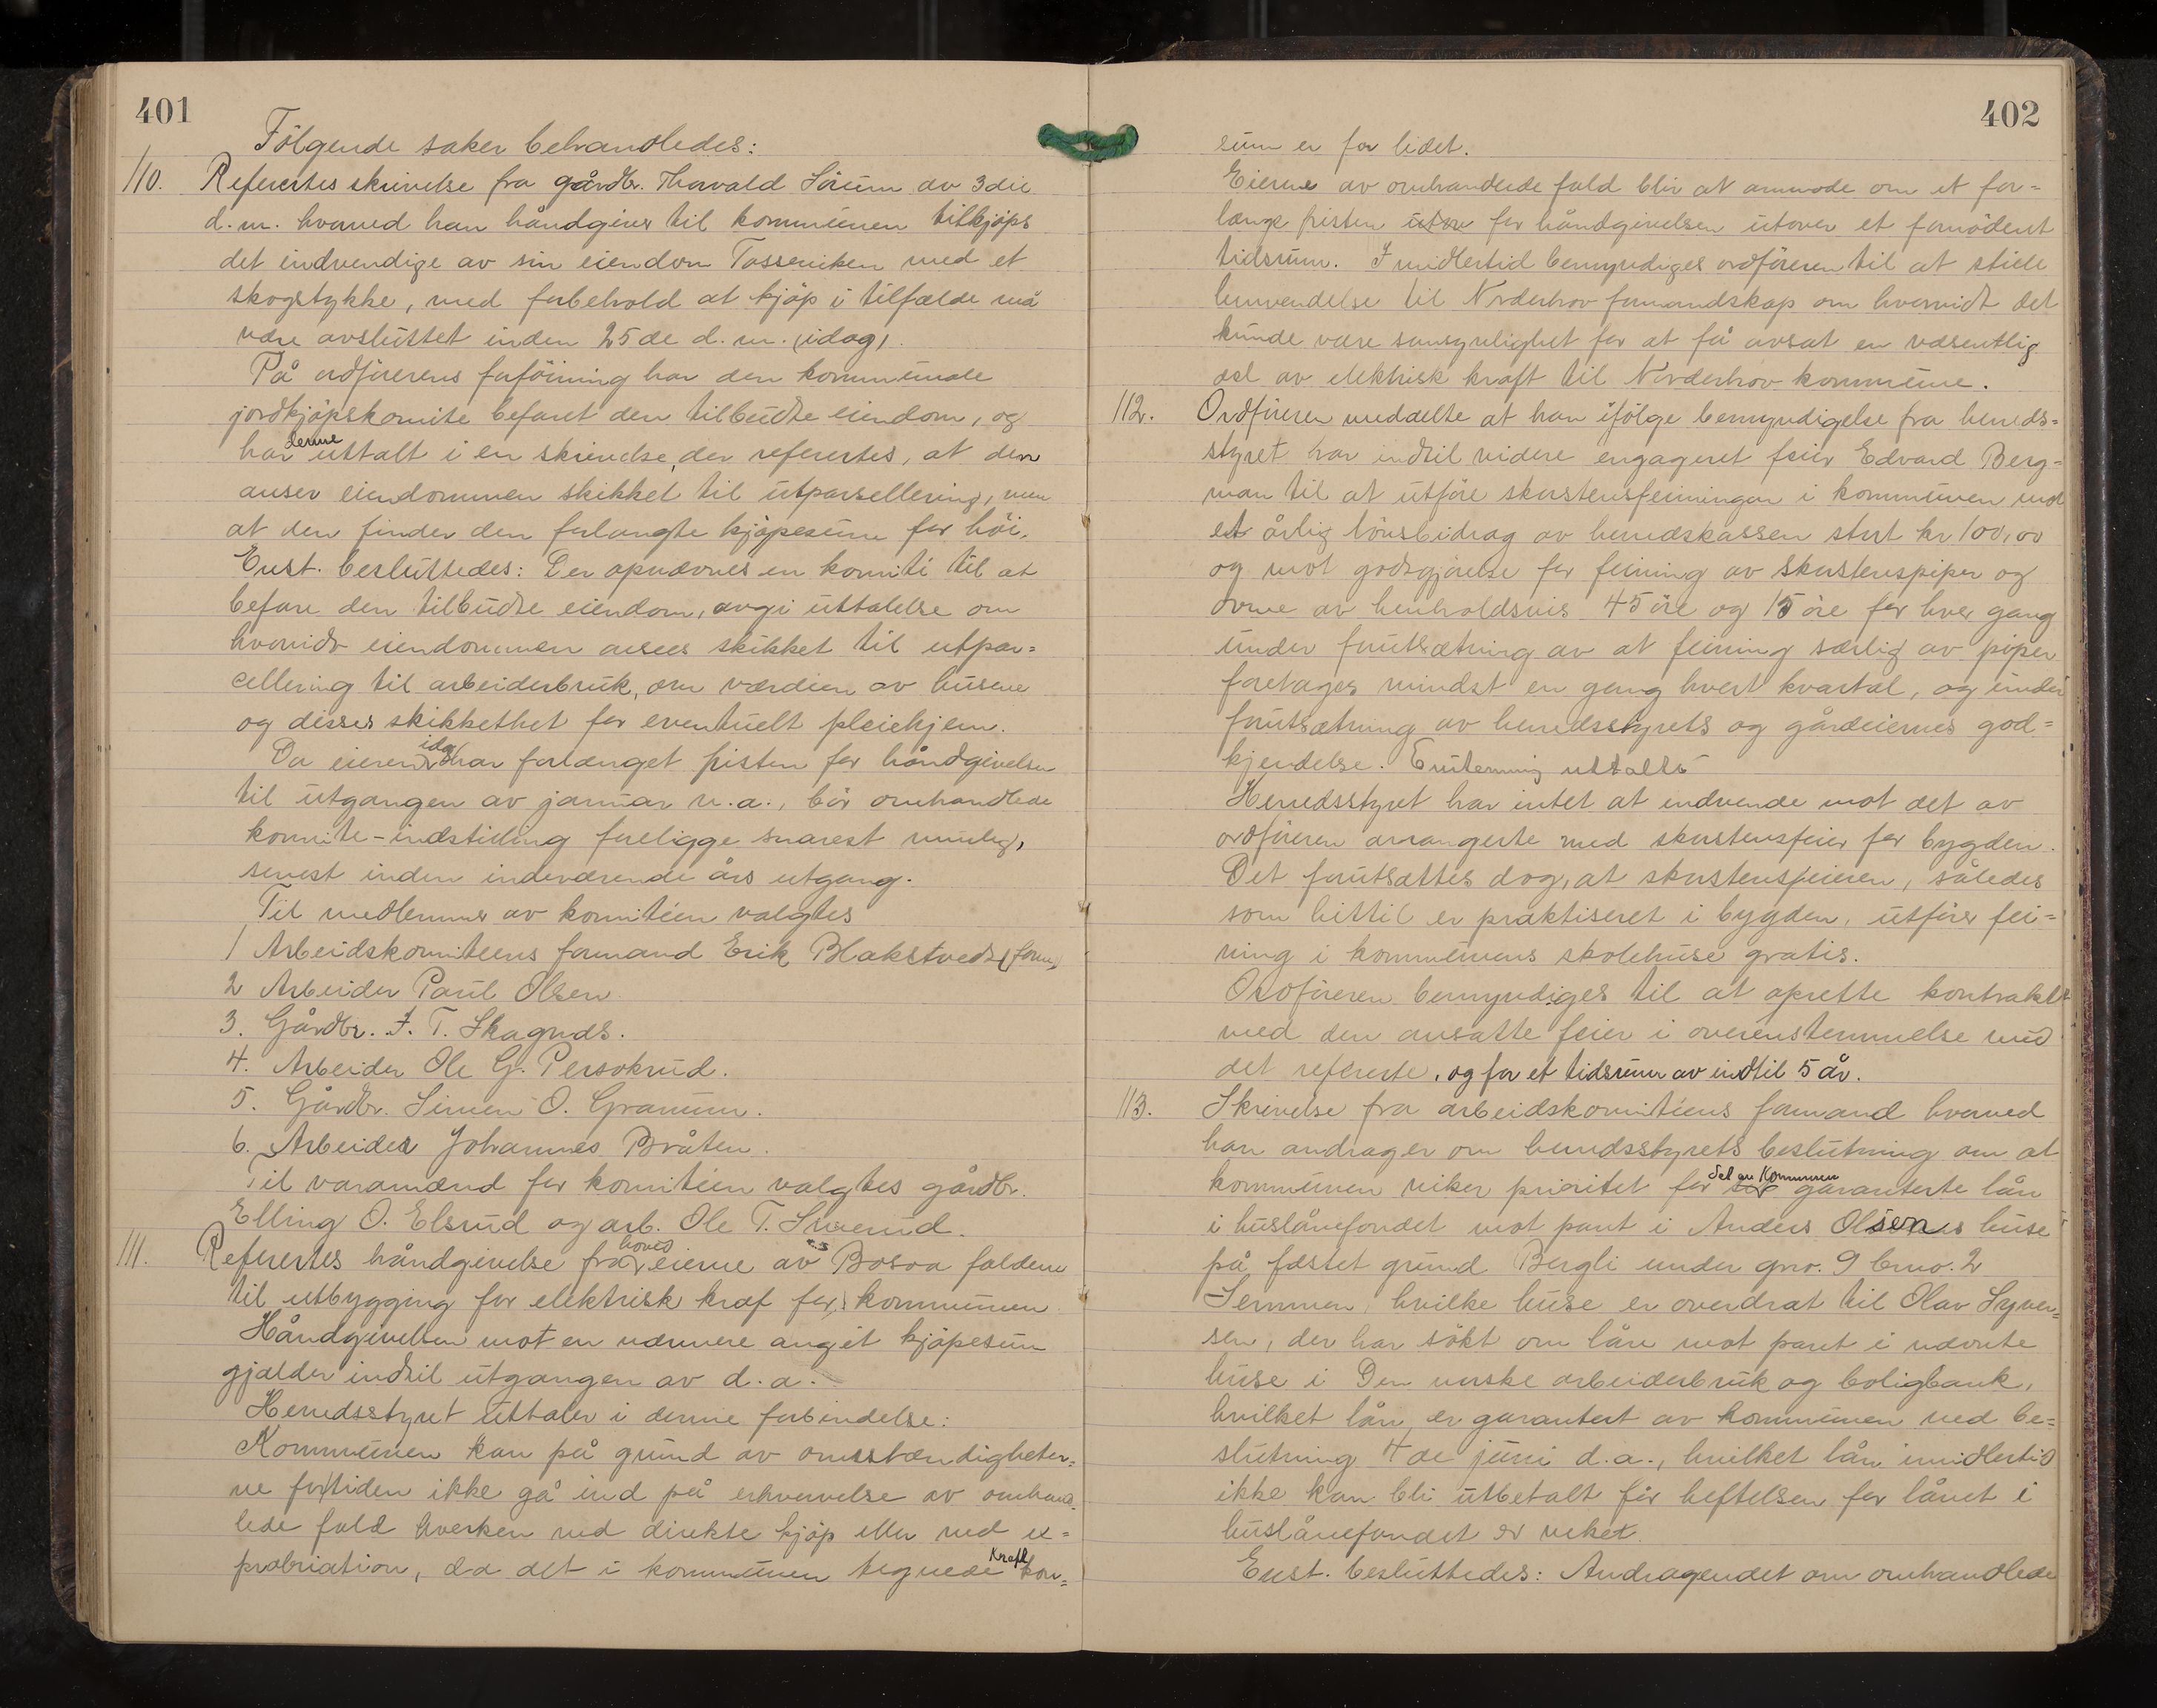 401
Følgende saker behandledes:
110. Refereertes skrivelse fra gårdbr. Thorvald Sörum av 3die
d.m. hvorved han håndgiver til kommunen tilkjöps
det indvendige av sin eiendom Tosseviken med et
skogstykke, med forbehold at kjöp i tilfælde må
være avsluttet inden 25de d.m. (idag).
På ordförerens foföining har den kommunale
jordkjöpskomite befaret den tilbudte eiendom, og
har denne uttalt i en skrivelse, der refereertes, at den
anser eiendommen skikket til utparsellering, men
at den finder den forlangte kjöpesum for höi.
Enst. besluttedes: Der opnævnes en komite til at
befare den tilbudte eiendom, avgi uttalelse om
hvorvidt eiendommen ansees skikket til utpar=
cellering til arbeiderbruk, om værdien av husene
og disses skikkethet for eventuelt pleiehjem.
Da eieren idag har forlænget fristen for håndgivelsen
til utgangen av januar n.a., bör omhandlede
komite-indstilling foreligge snarest mulig,
senest inden indeværende års utgang.
Til medlemmer av komiteen valgtes
1 Arbeidskomiteens formand Erik Blakstveds (form)
2 Arbeider Paul Olsen
3. Gårdbr. F. T. Skagnæs.
4. Arbeider Ole G. Persokrud.
5. Gårdbr. Simen O. Granum.
6. Arbeider Johannes Bråten.
Til varamænd for komiteen valgtes gårdbr.
Elling O. Elsrud og arb. Ole T. Sværud.
111. Refereertes håndgivelse fra hoved eierne av Bosoa faldene
til utbygging for elektrisk kraf for kommunen
Håndgivelsen mot en nærmere angit kjöpesum
gjælder indtil utgangen av d.a.
Herredsstyret uttaler i denne forbindelse:
Kommunen kan på grund av omstændigheter=
ne for tiden ikke gå ind på erhvervelse av omhand=
lede fald hverken ved direkte kjöp eller ved ex=
probriation, da det i kommunen tegnede Kraft kon=
402
sum er for lidet.
Eierne av omhandlede fald blir at anmode om et for=
længe fristen utov for håndgivelsen utover et fornödent
tidsrum. I midlertid bemyndiges ordföreren til at stille
henvendelse til Norderhov formandskap om hvorvidt det
kunde være sansynlighet for at få avsat en væsentlig
del av elektrisk kraft til Norderhov kommune.
112. Ordföreren meddelte at han ifölge bemyndigelse fra herreds=
styret har indtil videre engageret feier Edvard Berg=
man til at utföre skorstensfeiningen i kommunen mot
et årlig lönsbidrag av herredskassen stort kr 100,00
og mot godtgjörelse for feining av skorstenspiper og
ovne av henholdsvis 45 öre og 15 öre for hver gang
under forutsætning av at feining særlig av piper
foretages mindst en gang hvert kvartal, og under
forutsætning av herredsstyrets og gårdeiernes god=
kjendelse. Enstemmig uttaltes
Herredsstyret har intet at indvende mot det av
ordföreren arrangerte med skorstensfeier for bygden.
Det forutsættes dog, at skorstensfeieren, således
som hittil er praktiseret i bygden, utförer fei=
ning i kommunens skolehuse gratis.
Ordföreren bemyndiges til at oprette kontrakt
med den ansatte feier i overenstemmelse med
det refererte, og for et tidsrum av indtil 5 år.
113. Skrivelse fra arbeidskomiteens formand hvorved
han andrager om herredsstyrets beslutning om at
kommunen viker prioritet for det av Kommunen garanterte lån
i huslånefondet mot pant i Anders Olsens huse
på fæstet grund Bergli under gno. 9 bruno. 2
Semmen, hvilke huse er overdrat til Olav Syver=
sen, der har sökt om lån mot pant i nævnte
huse i Den norske arbeiderbruk og boligbank,
hvilket lån er garantert av kommunen ved be=
slutning 4de juni d.a., hvilket lån imidlertid
ikke kan bli utbetalt för heftelsen for lånet i
huslånefondet er veket.
Enst. besluttedes: Andragendet om omhandlede